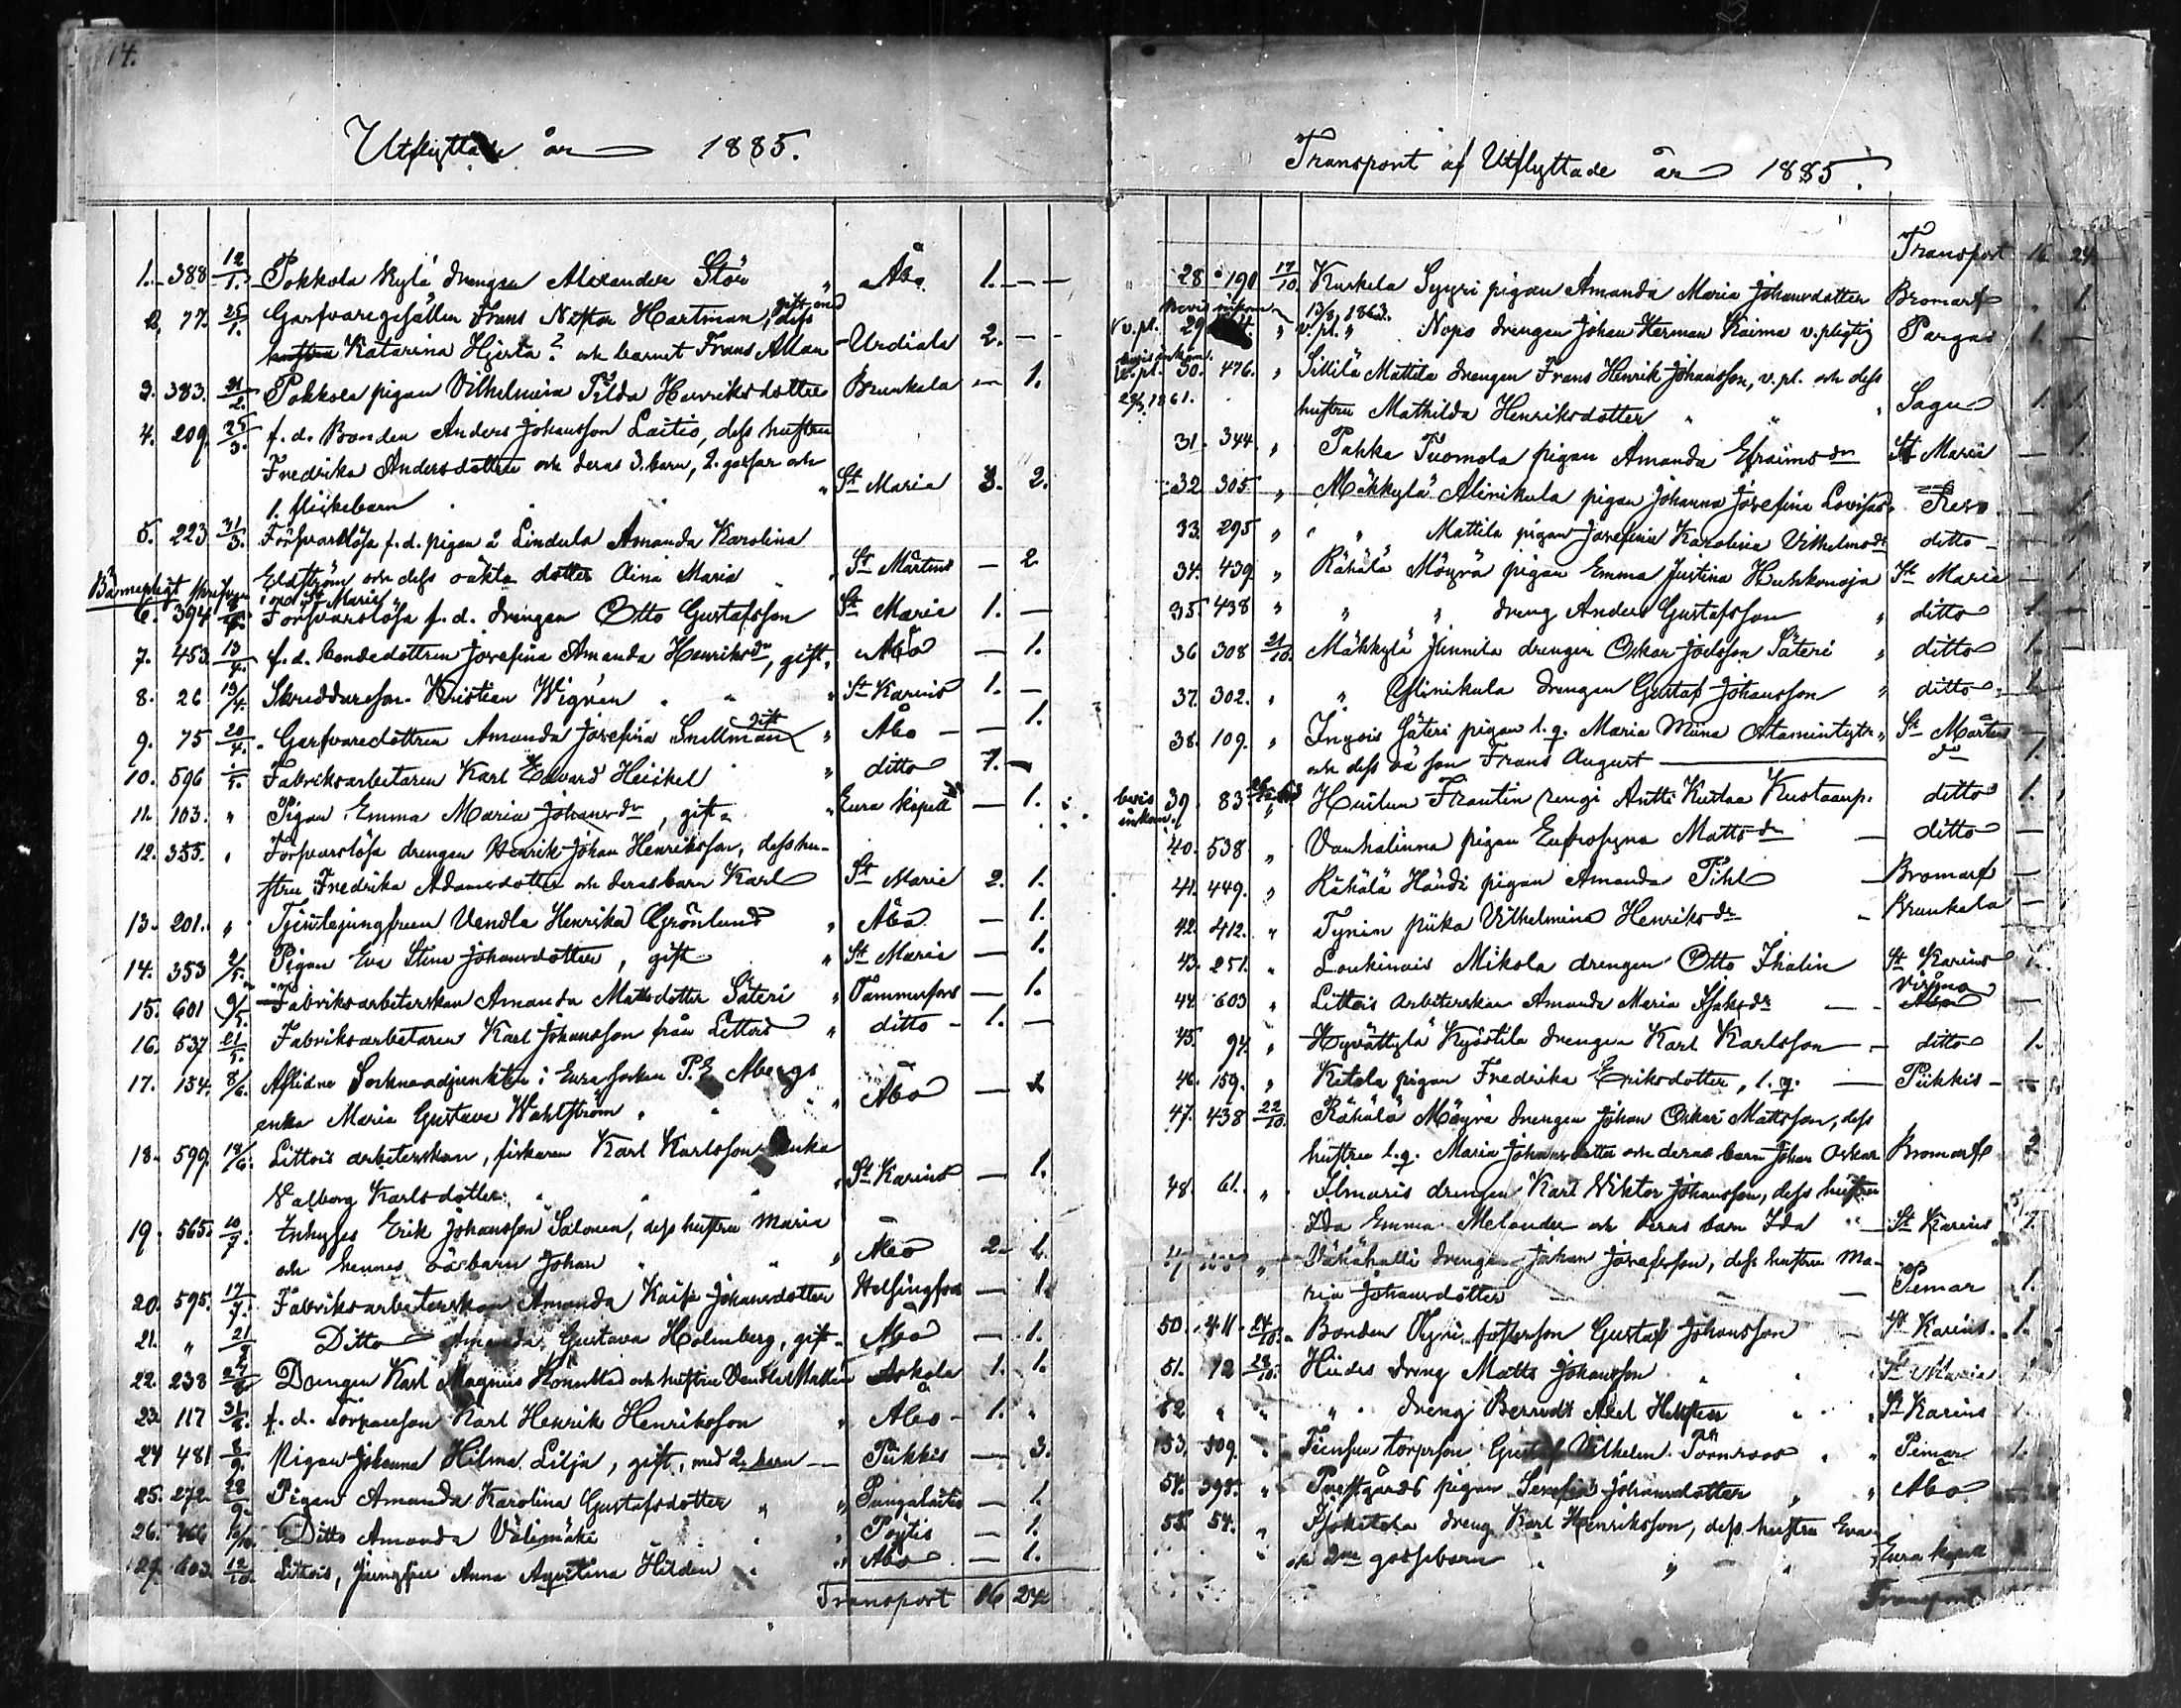 14.
Utflyttade år 1885.
1. 388 12/1. Pokkola Kylä drengen Alexander Stör " Åbo 1. —
2. 77. 25/1. Garfvaregesällen Frans Nestor Hartman, gift med dess
hustru Katarina Hjerta? och barnet Frans Allan - Urdiala 2. —
3. 383. 21/2. Pokkola pigan Vilhelmina Tilda Henriksdotter Brunkala — 1.
4. 209. 25/3. f. d. Bonden Anders Johansson Laitio, dess hustru
Fredrika Andersdotter och deras 3. barn, 2. gossar och
1. flickebarn " St Maria 3. 2.
5. 223 31/3. Försvarslösa f. d. pigan å Lindula Amanda Karolina
Eldström och dess oäkta dotter Aina Maria " St Mårtens — 2
i St Marie
6. 394 Försvarslösa f. d. drengen Otto Gustafsson St Marie 1. —
7. 453. 13/4. f. d. bondedottren Josefina Amanda Henriksdr, gift. Åbo — 1.
8. 26 19/4. Skreddareson Kristian Wigrén " " St Karins 1. —
9. 75 20/4. Garfvaredottren Amanda Josefina Snellman gift " Åbo — 1.
10. 596 1/5. Fabriksarbetaren Karl Edvard Heickel " ditto 1. —
11. 103. " Pigan Emma Maria Johansdr, gift " Eura Kapell — 1.
12. 355. " Försvarslösa drengen Henrik Johan Henriksson, dess hu-
stru Fredrika Adamsdotter och deras barn Karl St Marie 2. 1.
13. 201. " Tjenstejungfrun Vendla Henrika Grönlund " Åbo — 1.
14. 353 2/5. Pigan Eva Stina Johansdotter, gift " St Maria — 1.
15. 601 9/5. Fabriksarbeterskan Amanda Matsdotter Säteri " Tammerfors — 1.
16. 537 21/5. Fabriksarbetaren Karl Johansson från Littois " ditto - 1. —
17. 154. 8/6. Aflidne Sockneadjunkten i Eura Socken P. E. Abergs
enka Maria Gustava Wahlström " " Åbo — 1
18. 599. 18/6. Littois arbeterskan, fiskaren Karl Karlsson enka
Valborg Karlsdotter " " " St Karins — 1.
19. 565. 10/7. Inhyses Erik Johansson Salonen, dess hustru Maria
och hennes oä barn Johan " " " Åbo 2. 1.
20. 595. 17/7. Fabriksarbeterskan Amanda Kaisa Johansdotter Helsingfors — 1.
21. " 21/ Ditto Amanda Gustava Holmberg, gift - Åbo — 1.
22. 238 Drengen Karl Magnus och hustru Vendla Askola 1. 1.
23. 117 31/8. f. d. Torpareson Karl Henrik Henriksson " Åbo - 1. "
24 481 8/9. Pigan Johanna Hilma Lilja, gift, med 2. barn — Piikkis — 3.
25. 272. 28/9. Pigan Amanda Karolina Gustafsdotter " " Pungalaitio — 1.
26. 466 6/10. Ditto Amanda Välimäki " " Pöytis — 1.
27. 603. 12/10. Littois, Jungfru Anna Agustina Hilden " " Åbo — 1.
Transport 16 24
Transport af Utflyttade år 1885.
Transport 16. 24
" 28 190 17/10. Kurkela Syyri pigan Amanda Maria Johansdotter Bromarf " 1.
13/8 1863.
v. pl. 29 " v. pl. " Nopo drengen Johan Herman Kaima v. pligtig Pargas 1. —
v. pl. 30. 476. " Sillilä Mattila drengen Frans Henrik Johansson, v. pl. och dess
1861. hustru Mathilda Henriksdotter " " " Sagu 1. 1.
31. 344. " Pahka Tuomola pigan Amanda Efraimsdr St Marie — 1.
32 305. " Mäkkylä Alinikula pigan Johanna Josefina Lovisad. Reso. — 1.
33. 295 " " " Mattila pigan Josefina Karolina Vilhelmsdr ditto — 1.
34. 439. " Rähälä Möyrä pigan Emma Justina Huhkonoja St Marie — 1.
35. 438 " " " dreng Anders Gustafsson " ditto 1. —
36 308 21/10. Mäkkylä Junnila drengen Oskar Joelsson Säteri " ditto 1.
37. 302. " " Alinikula drengen Gustaf Johansson " ditto 1.
38. 109. " Ingois Säteri pigan l. q. Maria Miina " St Mårtens
och dess oä son Frans August — dr 1.
bevis inkom. 39. 83. " Huilun Frantin rengi Antti Kustaa Kustaanp. ditto 1.
40. 538 " Vanhalinna pigan Eufrosyna Mattsdr — ditto —
41. 449. " Rähälä Händi pigan Amanda Pihl — Bromarf —
42. 412. " Tynin piika Vilhelmina Henriksdr - Brunkala —
43. 251. " Loukinais Mikola drengen Otto Ihalin St Karins 1.
44. 603 " Littois arbeterskan Amanda Maria Isaksdr — Virmo —
45. 94. " Hyvättylä Kyöstilä drengen Karl Karlsson — ditto 1.
46. 159. " Ketola pigan Fredrika Eriksdotter, l. q. — Piikkis —
47. 438 22/10. Rähälä Möyrä drengen Johan Oskar Mattsson, dess
hustru l. q. Maria Johansdotter och deras barn Johan Oskar Bromarf 2
48. 61. " Ilmaris drengen Karl Viktor Johansson, dess hustru
Ida Emma Melander och deras barn Ida " — St Karins 1.
" Vähähalli drengen Johan Josefsson, dess hustru Ma-
ria Johansdotter — — — Piemar 1.
50. 411. 24/10. Bonden Tyri fosterson Gustaf Johansson — St Karins. 1.
51. 12 28/10. Hiides dreng Matts Johansson " " St Maria 1.
52 " " " " dreng Berndt Axel " " " St Karins 1
53. 509. " torpson Gustaf Vilhelm Törnroos " " Pimar 1.
54. 398. " Prestgårds pigan Serefia Johansdotter " " Åbo
55. 54. " Isoketola dreng Karl Henriksson, dess hustru Eva
" och 2ne gossebarn " " " Eura kapell
Transport